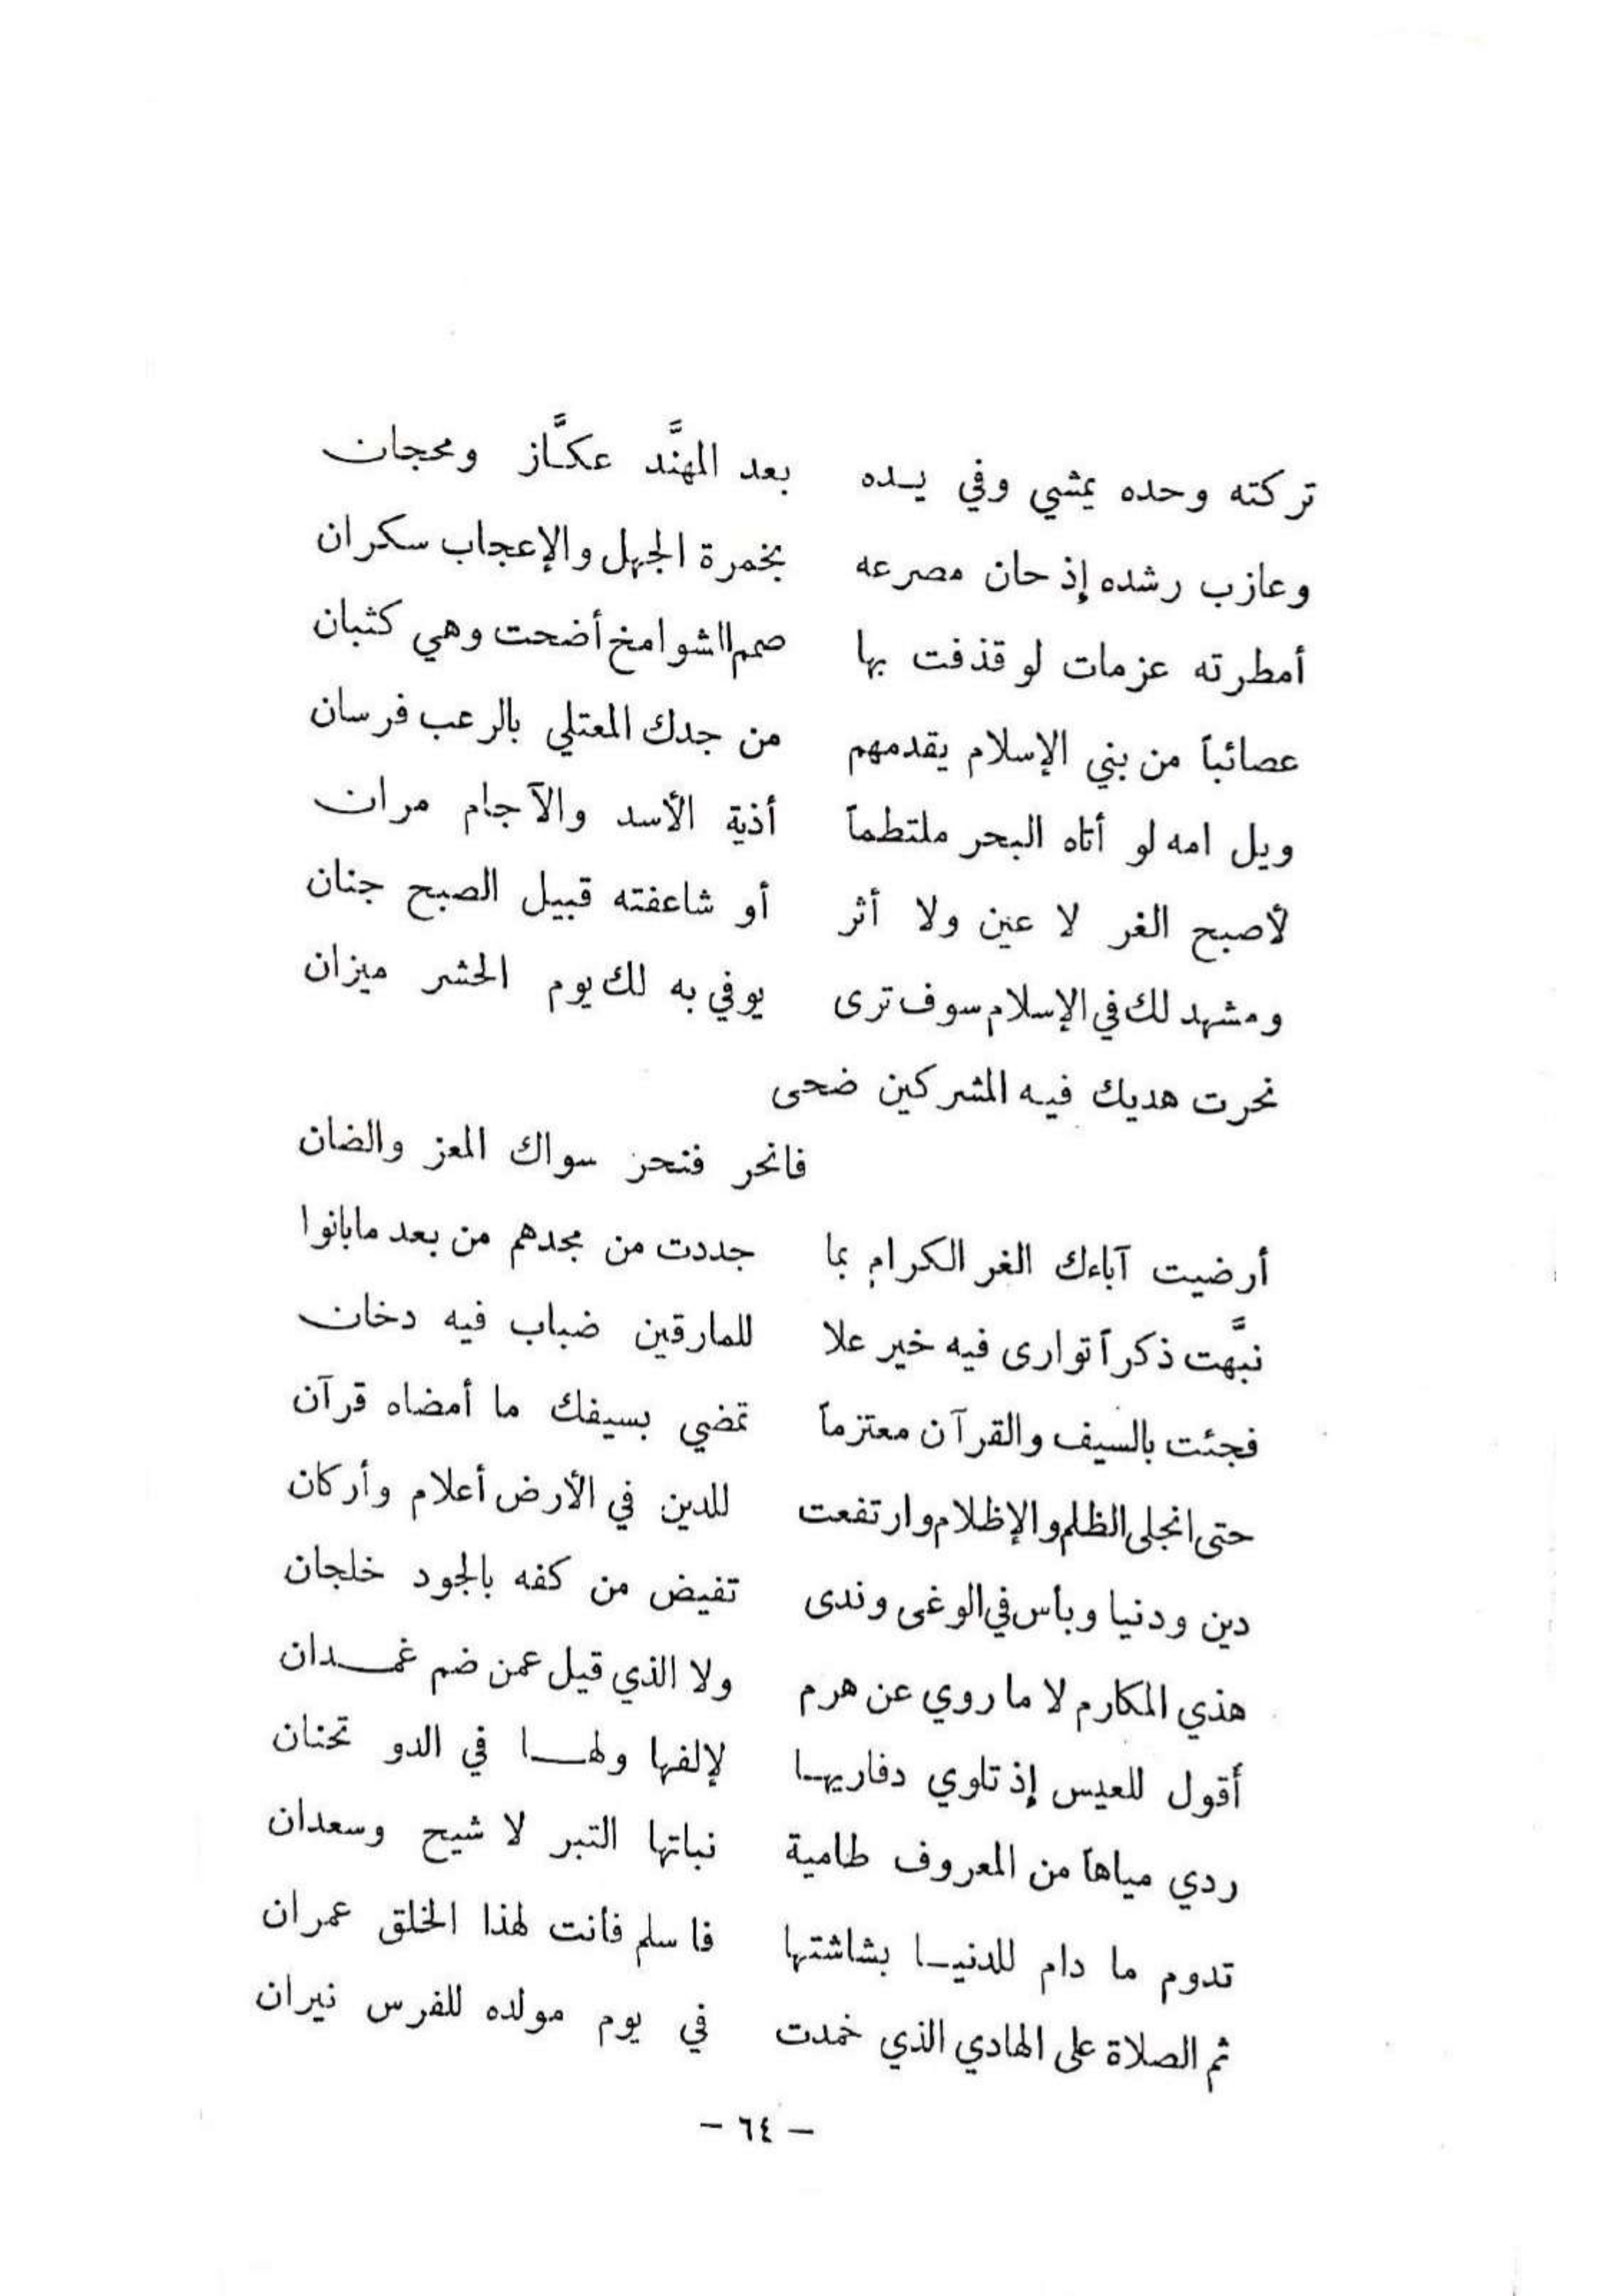 تركته وحده يمشي وفي يده بعد المهنَّد عكَّاز ومحجان
وعازب رشده إذ حان مصرعه بخمرة الجهل والإعجاب سكران
أمطرته عزمات لو قذفت بها صم الشوامخ أضحت وهي كثبان
عصائباً من بني الإسلام يقدمهم من جدك المعتلي بالرعب فرسان
ويل امه لو أتاه البحر ملتطماً أذية الأسد والآجام مران
لأصبح الغر لا عين ولا أثر أو شاعفته قبيل الصبح جنان
ومشهد لك في الإسلام سوف ترى يوفي به لك يوم الحشر ميزان
نحرت هديك فيه المشركين ضحى
فانحر فنحر سواك المعز والضان
أرضيت آباءك الغر الكرام بما جددت من مجدهم من بعد مابانوا
نبَّهت ذكراً توارى فيه خير علا للمارقين ضباب فيه دخان
فجئت بالسيف والقرآن معتزماً تمضي بسيفك ما أمضاه قرآن
حتى انجلى الظلم والإظلام وارتفعت للدين في الأرض أعلام وأركان
دين ودنيا وبأس في الوغى وندى تفيض من كفه بالجود خلجان
هذي المكارم لا ما روي عن هرم ولا الذي قيل عمن ضم غمدان
أقول للعيس إذ تلوي دفاريها لإلفها ولها في الدو تحنان
ردي مياهاً من المعروف طامية نباتها التبر لا شيح وسعدان
تدوم ما دام للدنيا بشاشتها فاسلم فأنت لهذا الخلق عمران
ثم الصلاة على الهادي الذي خمدت في يوم مولده للفرس نيران
— ٦٤ —